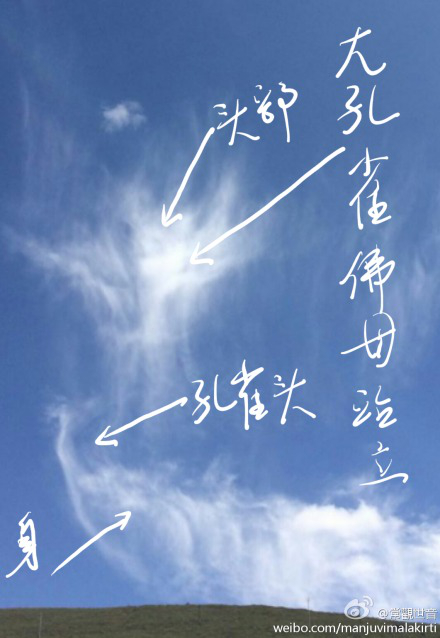 大孔雀佛母站立
头部
孔雀头
身
觀世音
weibo.com/manjuvimalakirti